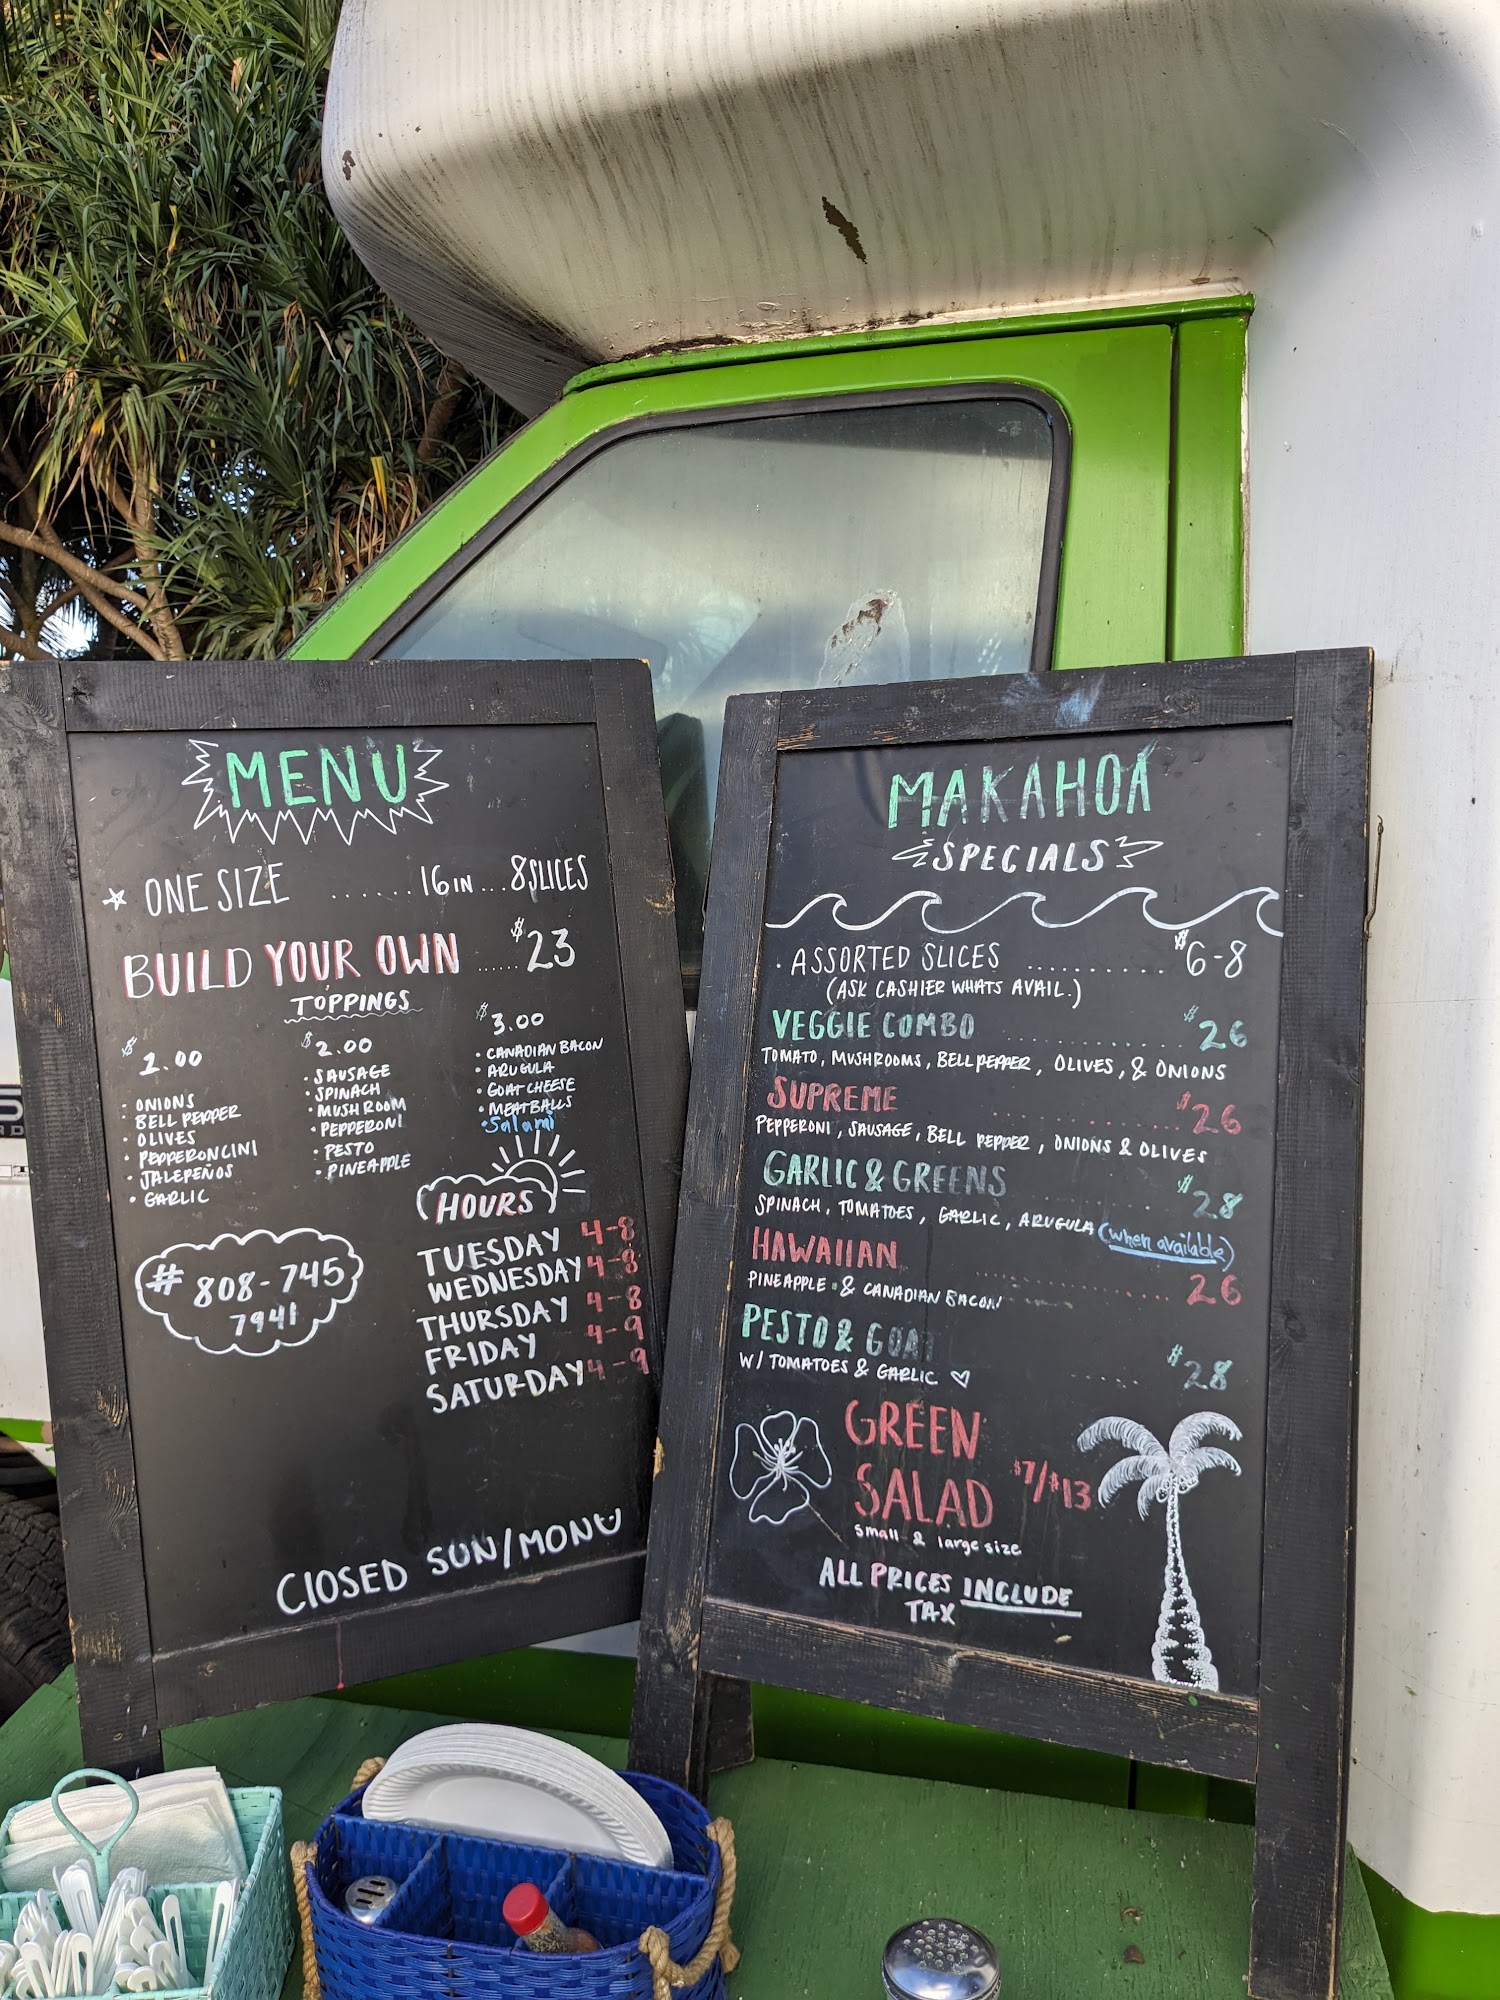 MENU
☆ ONE SIZE ....... 16 IN ... 8 SLICES
BUILD YOUR OWN ..... $23
TOPPINGS
$1.00
· ONIONS
· BELL PEPPER
· OLIVES
· PEPPERONCINI
· JALEPEÑOS
· GARLIC
$2.00
· SAUSAGE
· SPINACH
· MUSHROOM
· PEPPERONI
· PESTO
· PINEAPPLE
$3.00
· CANADIAN BACON
· ARUGULA
· GOAT CHEESE
· MEATBALLS
· Salami
# 808-745
7941
HOURS
TUESDAY 4-8
WEDNESDAY 4-8
THURSDAY 4-8
FRIDAY 4-9
SATURDAY 4-9
CLOSED SUN/MON
MAKAHOA
SPECIALS
· ASSORTED SLICES .......... $6-8
(ASK CASHIER WHATS AVAIL.)
VEGGIE COMBO ............... $26
TOMATO, MUSHROOMS, BELL PEPPER, OLIVES, & ONIONS
SUPREME ............. $26
PEPPERONI, SAUSAGE, BELL PEPPER, ONIONS & OLIVES
GARLIC & GREENS ..... $28
SPINACH, TOMATOES, GARLIC, ARUGULA (when available)
HAWAIIAN ............... 26
PINEAPPLE & CANADIAN BACON
PESTO & GOAT
W/ TOMATOES & GARLIC ♡ ..... $28
GREEN
SALAD $7/$13
small & large size
ALL PRICES INCLUDE
TAX